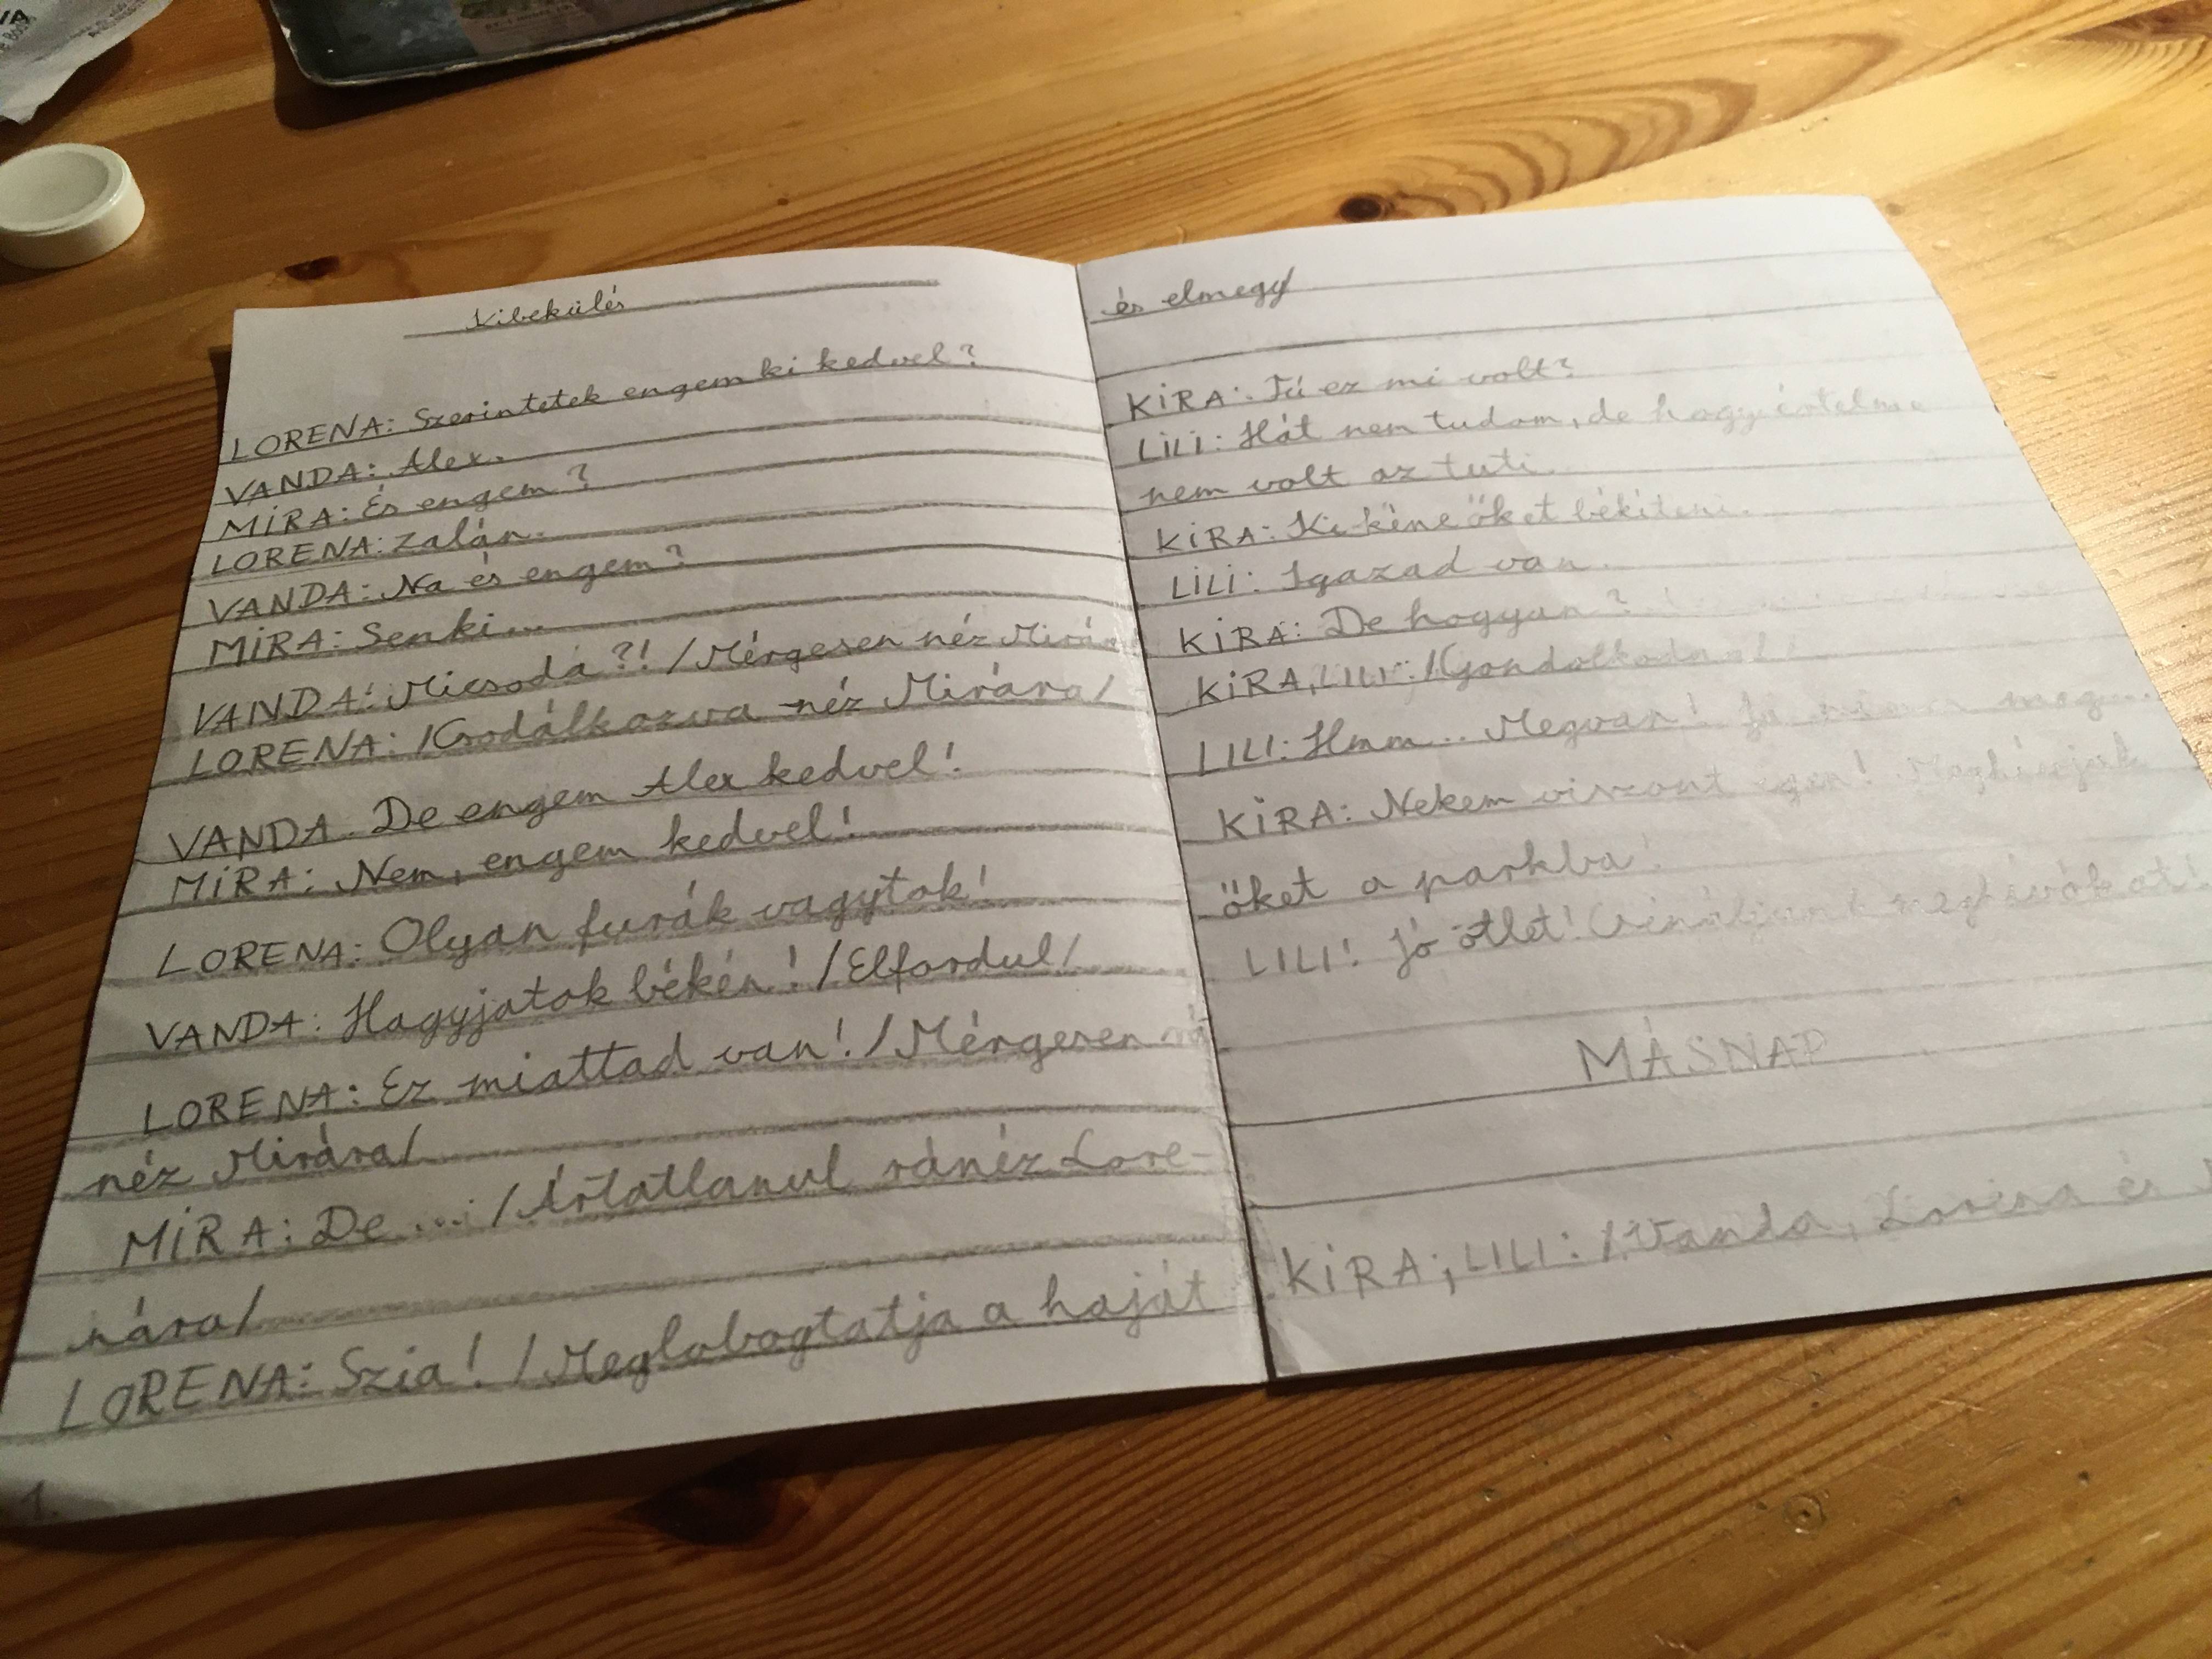 Kibekülés
LORENA: Szerintetek engem ki kedvel?
VANDA: Alex.
MIRA: És engem?
LORENA: Zalán.
VANDA: Na és engem?
MIRA: Senki...
VANDA: Micsoda?! /Mérgesen néz
LORENA: /Csodálkozva néz Mirára/
VANDA. De engem Alex kedvel!
MIRA: Nem, engem kedvel!
LORENA: Olyan furák vagytok!
VANDA: Hagyjatok békén! /Elfordul/
LORENA: Ez miattad van! /Mérgesen
néz Mirára/
MIRA: De ... /Ártatlanul ránéz Lore-
nára/
LORENA: Szia! /Meglobogtatja a haját
1.
és elmegy/
KIRA: Fú ez mi volt?
LILI: Hát nem tudom, de hogy értelme
nem volt az tuti.
KIRA: Ki kéne őket békíteni.
LILI: Igazad van.
KIRA: De hogyan?
KIRA, LILI: /Gondolkodnak/
LILI: Hmm... Megvan! Ja nincs meg...
KIRA: Nekem viszont igen! Meghívjuk
őket a parkba!
LILI! Jó ötlet! Csináljunk meghívókat!
MÁSNAP
KIRA; LILI: /Vanda, Lorena és